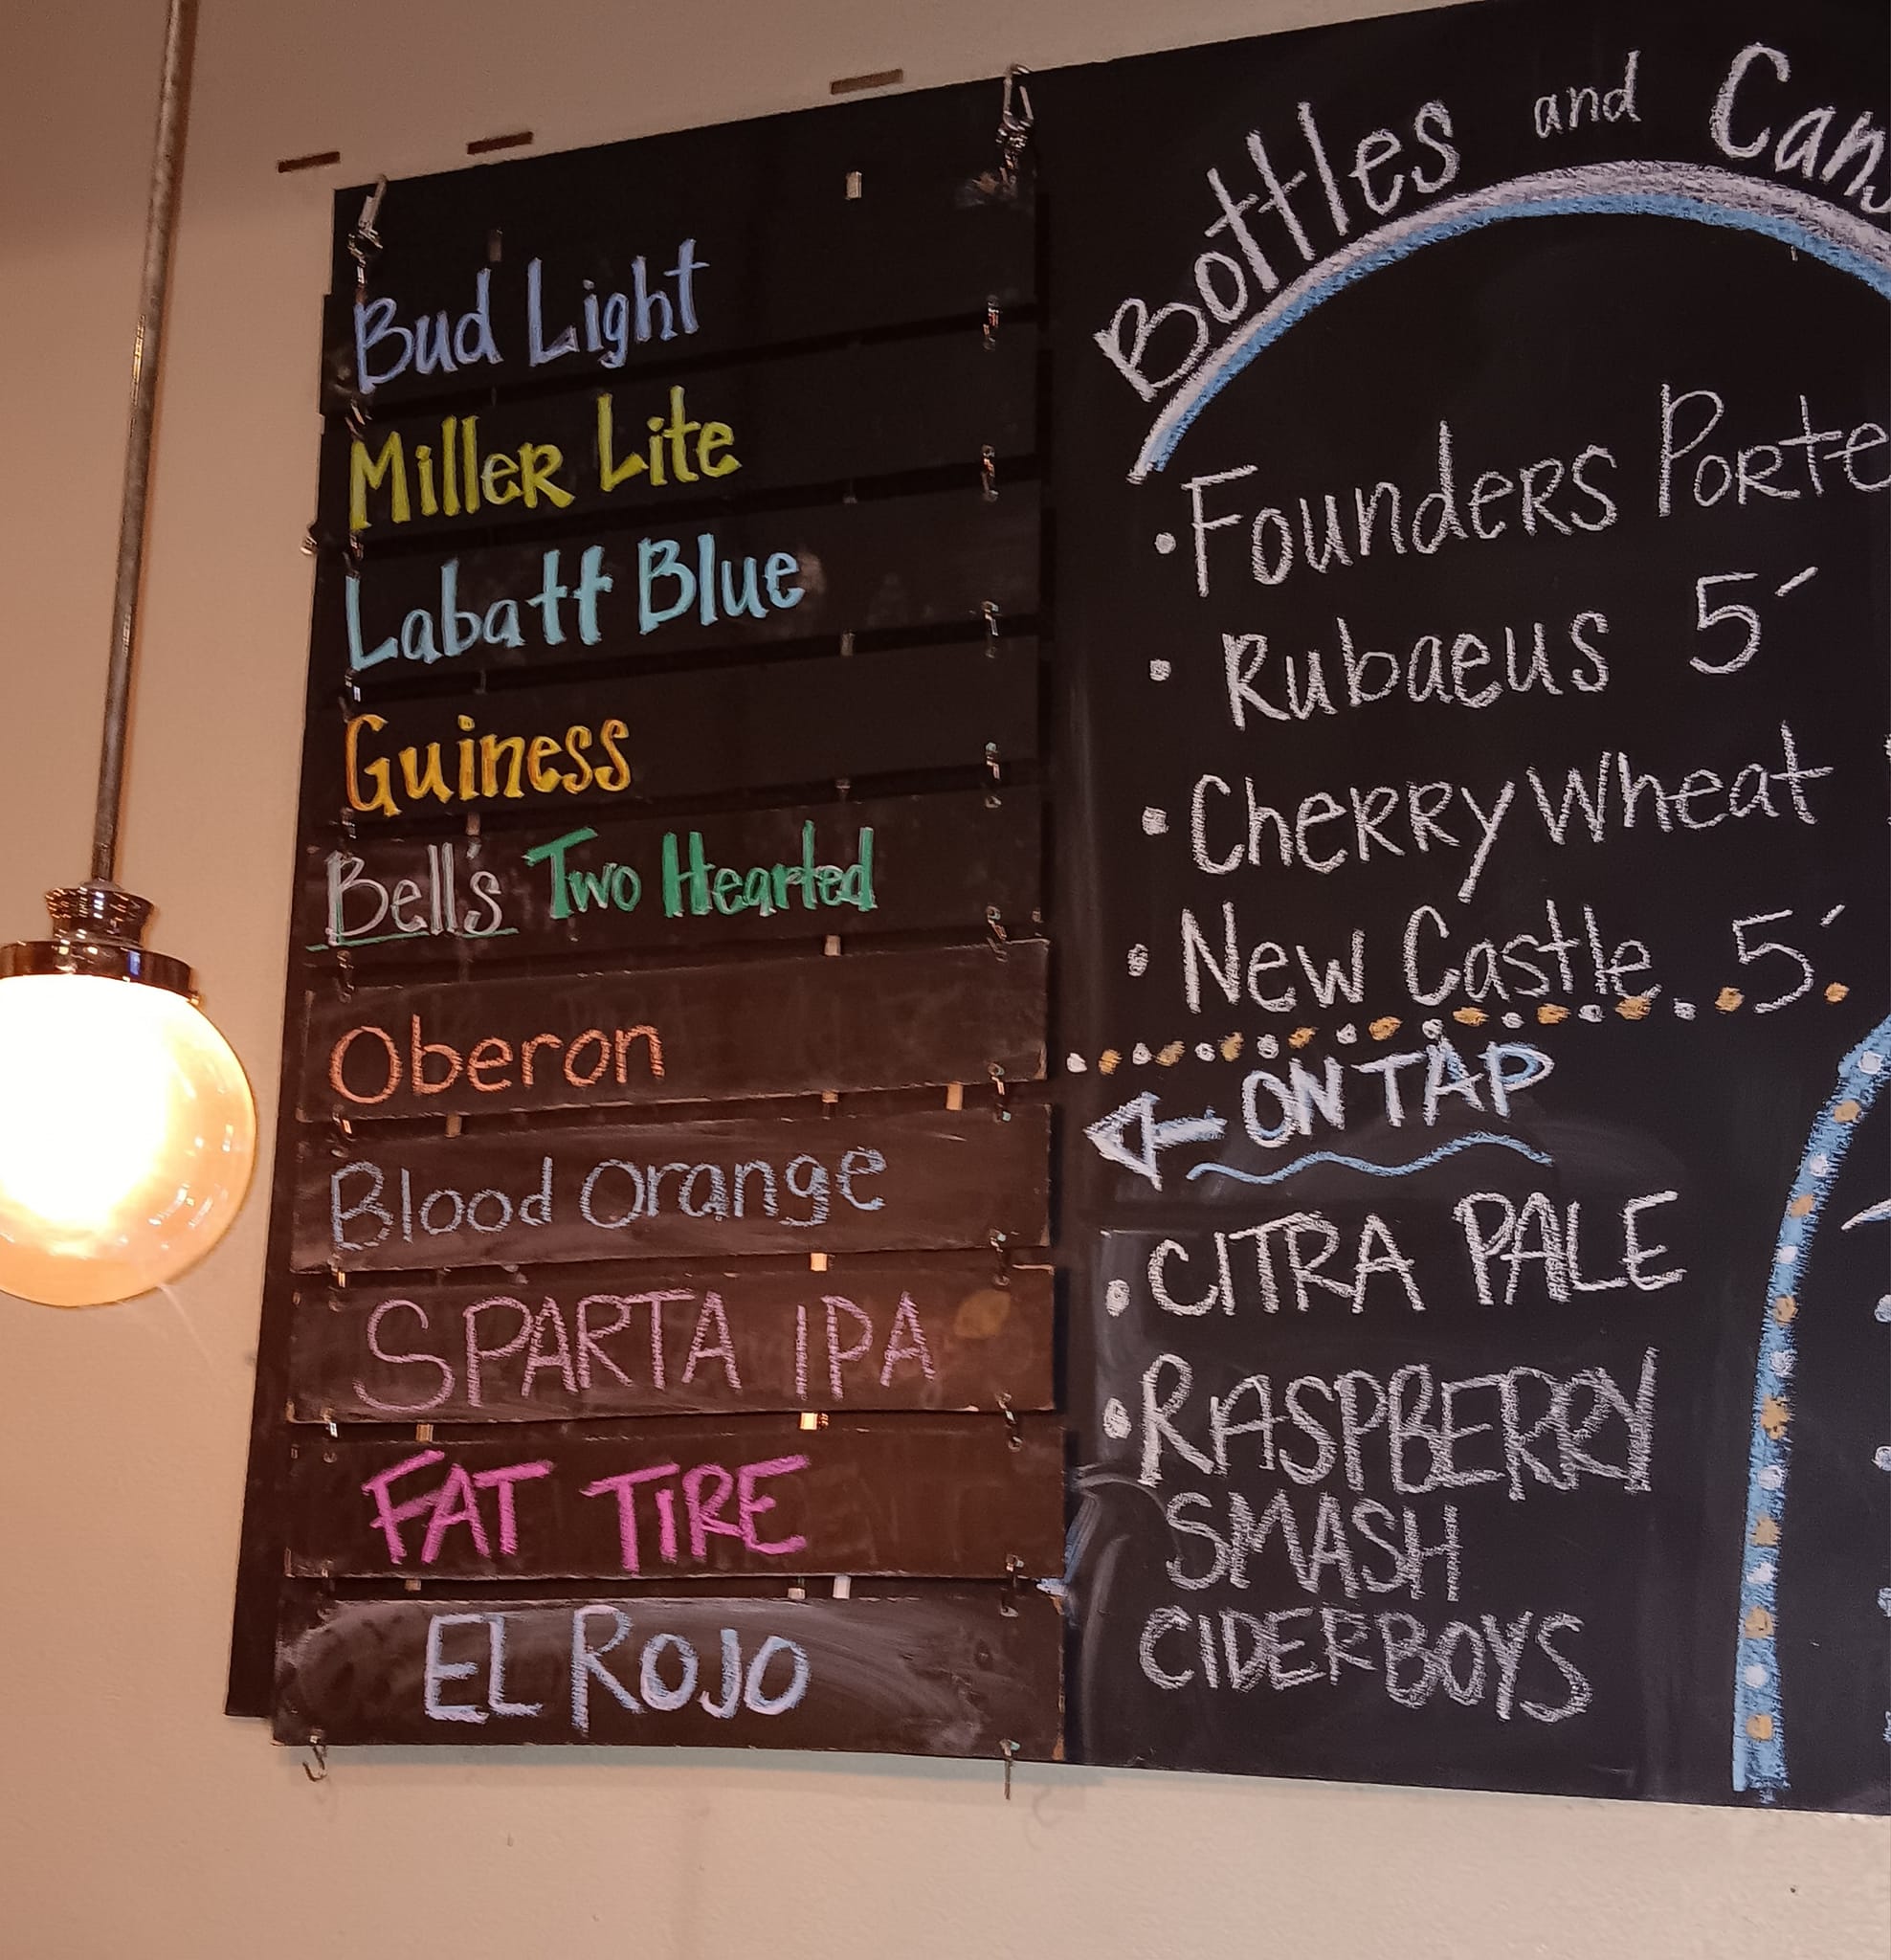 Bud Light
Miller Lite
Labatt Blue
Guiness
Bell's Two Hearted
Oberon
Blood Orange
SPARTA IPA
FAT TIRE
EL ROJO
Bottles and Cans
• Founders Porte
• Rubaeus 5´
• Cherry Wheat
• New Castle 5´
← ON TAP
• CITRA PALE
• RASPBERRY
SMASH
CIDERBOYS